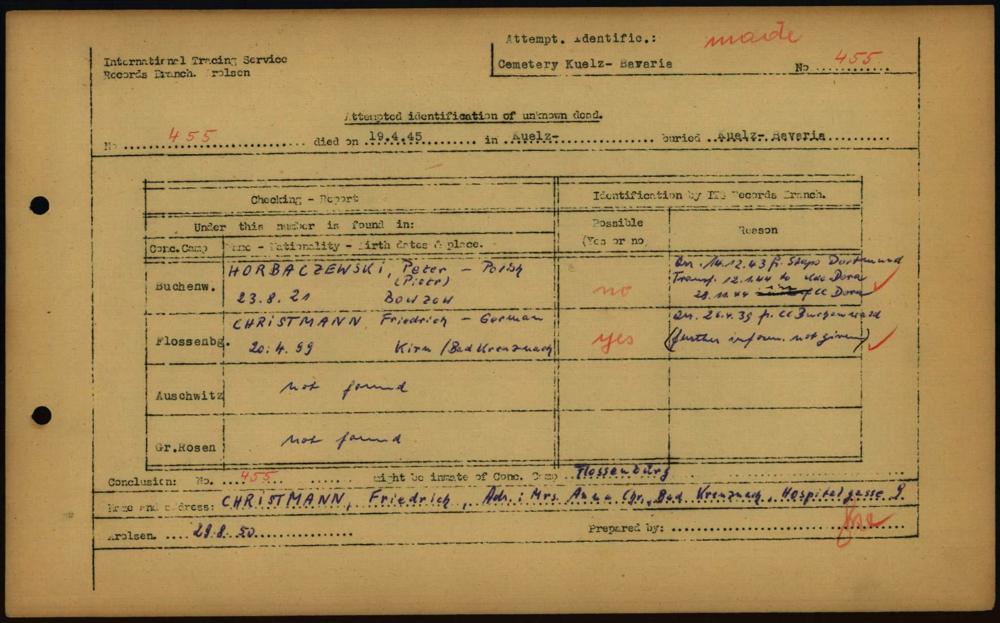 Attempt. Identific.: made
International Tracing Service
Cemetery Kuelz- Bavaria No 455
Records Branch. Arolsen
Attempted identification of unknown dead.
No 455 died on 19.4.45 in Kuelz- buried Kuelz- Bavaria
Checking - Report Identification by ITS Records Branch.
Under this number is found in: Possible (Yes or no) Reason
Conc.Camp Name - Nationality - Birth dates & place.
HORBACZEWSKI, Peter - Polish 14.12.43 f. Stapo Dortmund
Buchenw. (Piotr) no Transf. 12.1.44 to Kdo Dora
23.8.21 28.10.44 CC Dora
CHRISTMANN, Friedrich - German f. CC Buchenwald
Flossenbg. yes (further inform. not given)
20.4.99 Kirn / Bad Kreuznach
Auschwitz not found
Gr.Rosen not found
Conclusion: No. 455 might be inmate of Conc. Camp Flossenbürg
Name and address: CHRISTMANN, Friedrich, Adr.: Mrs. Anna Chr., Bad Kreuznach, Hospitalgasse 9.
Arolsen. 29.8.50 Prepared by: